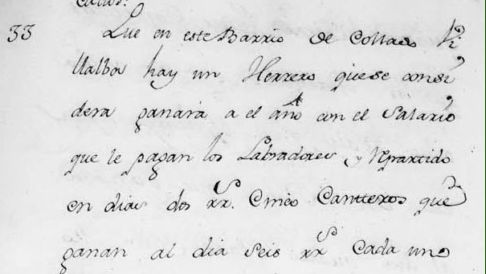 33 Que en este Barrio de Collado Vi
llalba hay un Herrero que se consi
dera ganará a el año con el Salario
que le pagan los Labradores y Repartido
en dias dos rrs. Cinco Canteros que
ganan al dia seis rrs cada uno